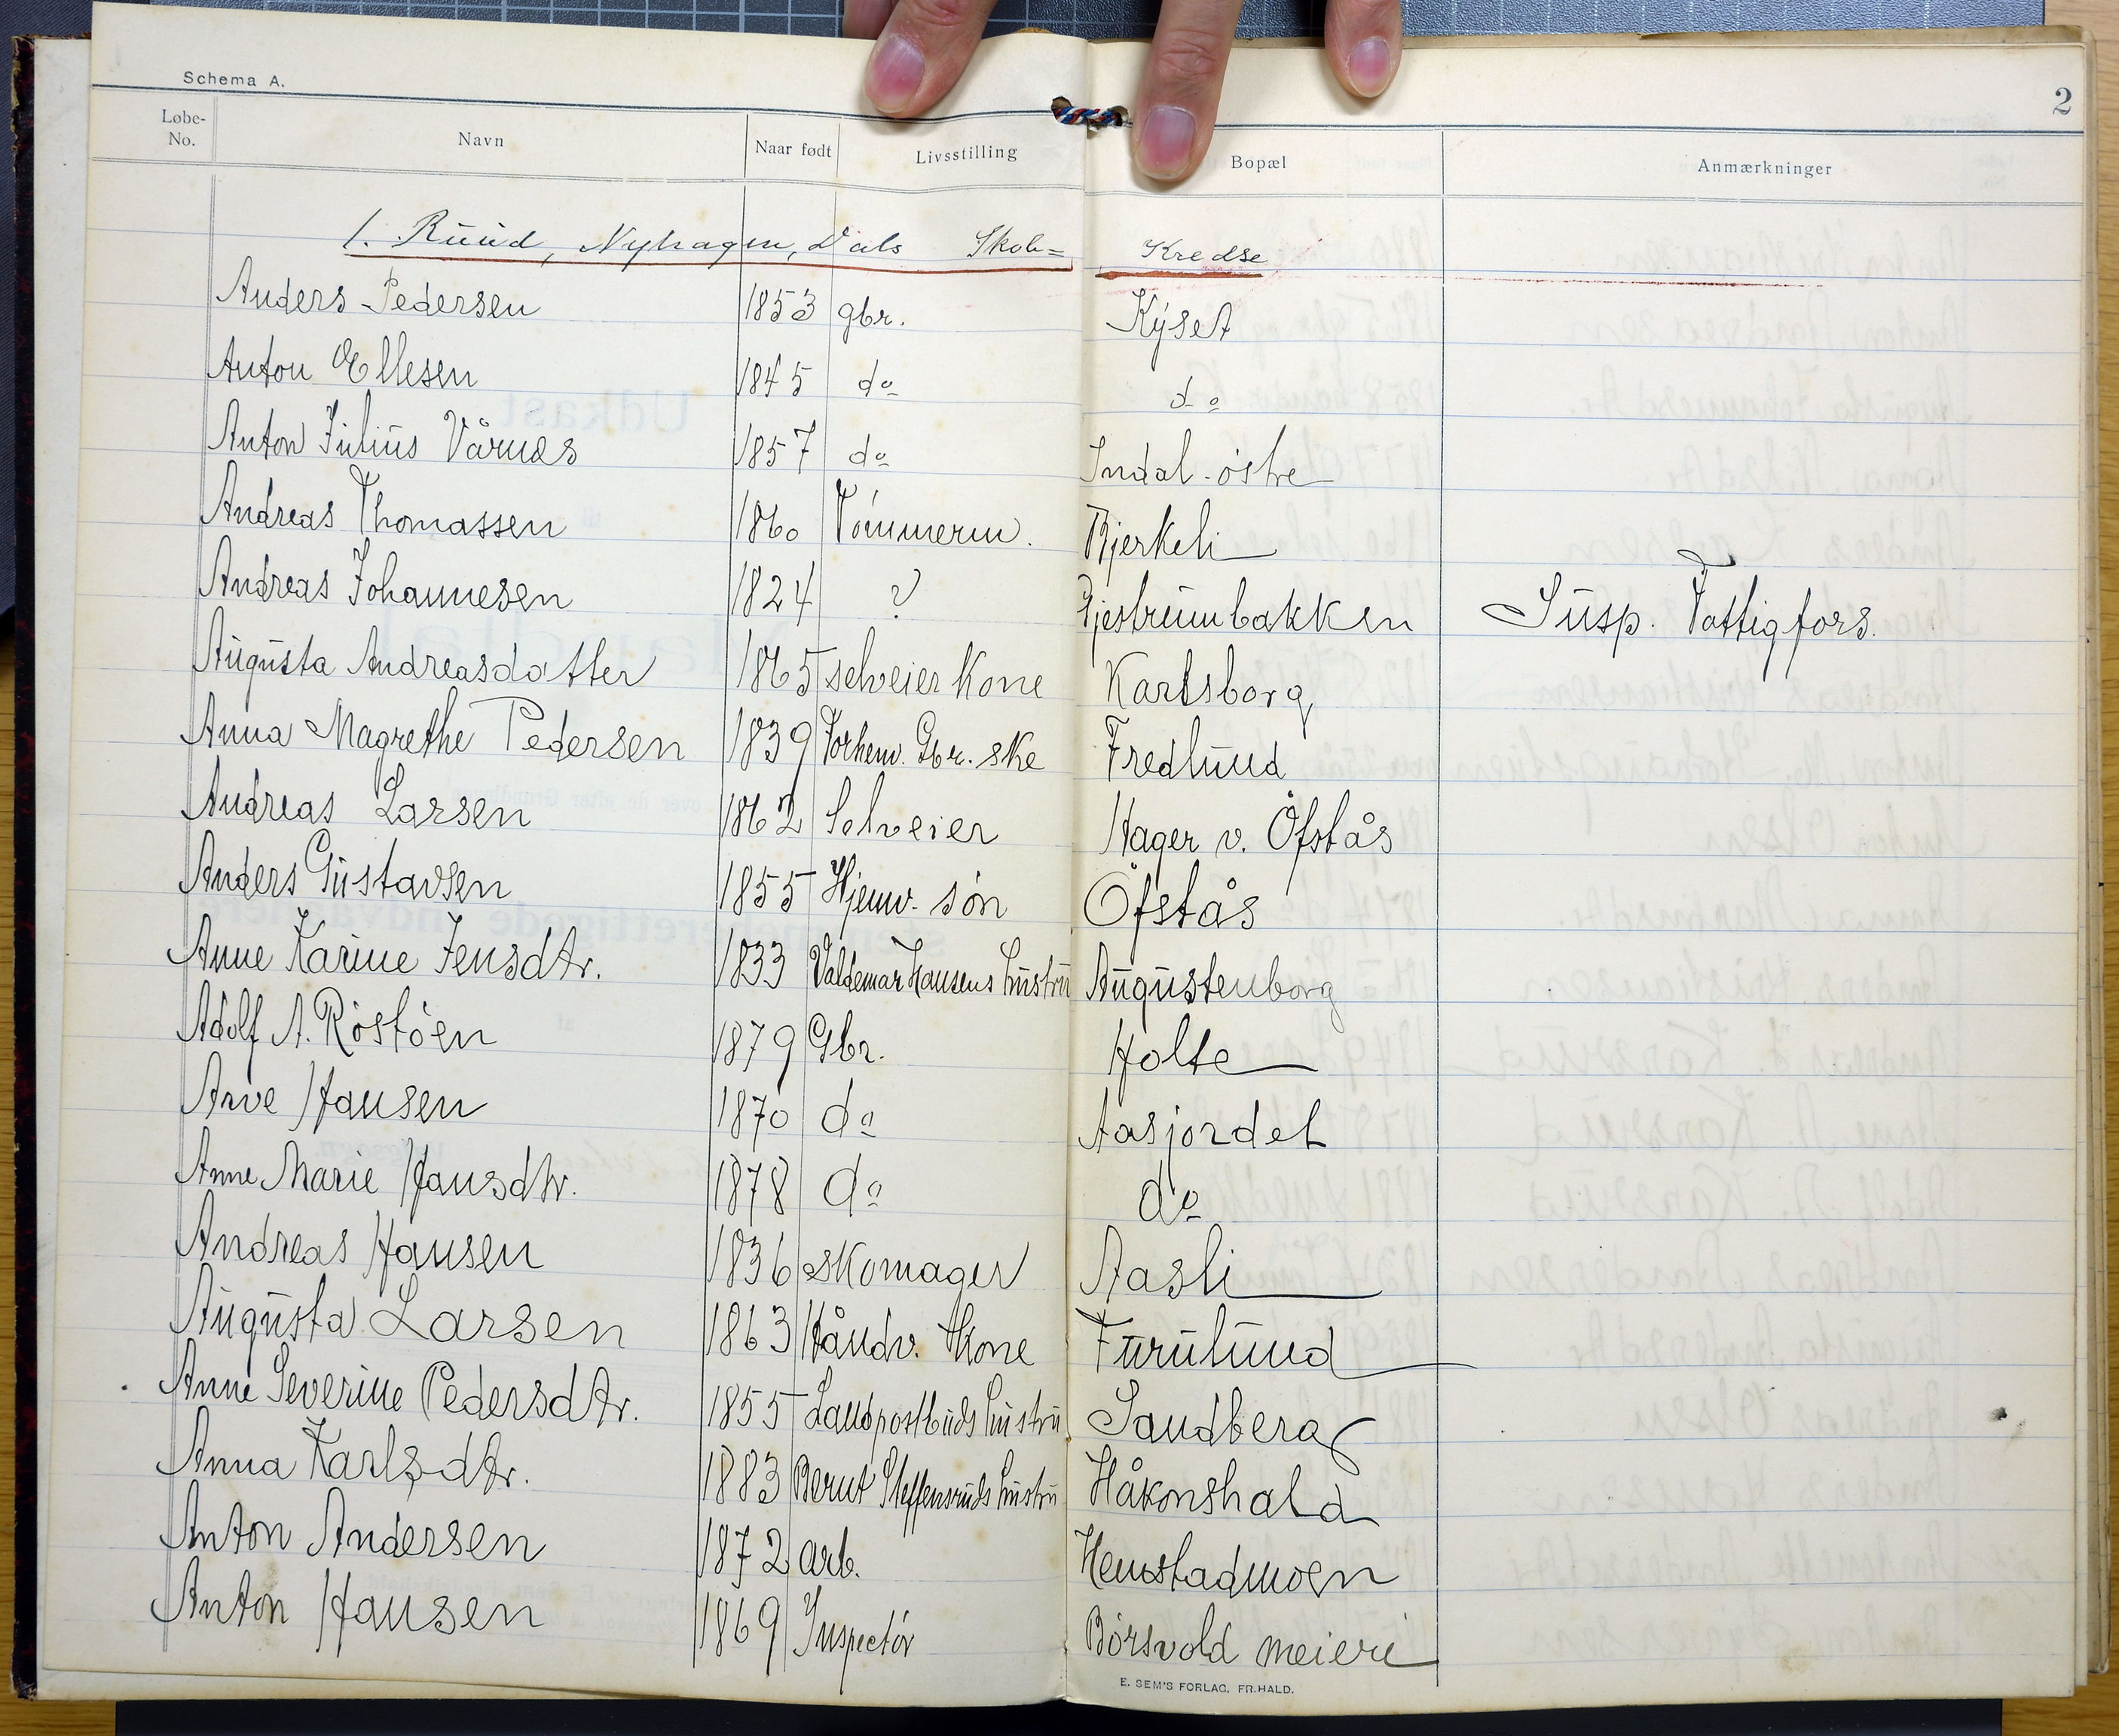 Schema A.
2
Løbe-No. Navn Naar født Livsstilling Bopæl Anmærkninger
1. Ruud, Nyhagen, Dals Skole= Kredse
Anders Pedersen 1853 gbr. Kyset
Anton Ellesen 1845 do do
Anton Julius Vårnes 1857 do Indal østre
Andreas Thomassen 1860 Tømmerm. Bjerkeli
Andreas Johannesen 1824 ? Gjestrumbakken Susp. Fattigfors.
Augusta Andreasdatter 1865 selveier kone Karlsborg
Anna Magrethe Pedersen 1839 Forhenv. Gbr. ske Fredlund
Andreas Larsen 1862 Selveier Hager v. Ofstås
Anders Gustavsen 1855 Hjemv. søn Ofstås
Anne Karine Jensdtr. 1833 Valdemar Hansens hustru Augustenborg
Adolf A. Røstøen 1879 Gbr. Holte
Arve Hansen 1870 do Aasjordet
Anne Marie Hansdtr. 1878 do do
Andreas Hansen 1836 skomager Aasli
Augusta Larsen 1863 Håndv. kone Furulund
Anne Severine Pedersdtr. 1855 Landpostbuds hustru Sandberg
Anna Karlsdtr. 1883 Bernt Steffensruds hustru Håkonshald
Anton Andersen 1872 arb. Hemstadmoen
Anton Hansen 1869 Inspectør Børsvold meieri
E. SEM'S FORLAG, FR.HALD.